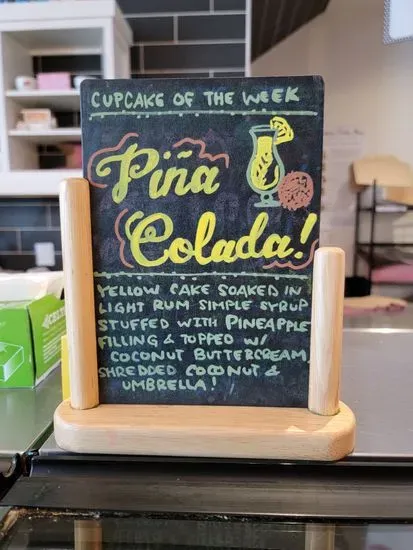 CUPCAKE OF THE WEEK
Piña
Colada!
YELLOW CAKE SOAKED IN
LIGHT RUM SIMPLE SYRUP
STUFFED WITH PINEAPPLE
FILLING & TOPPED W/
COCONUT BUTTERCREAM,
SHREDDED COCONUT &
UMBRELLA!